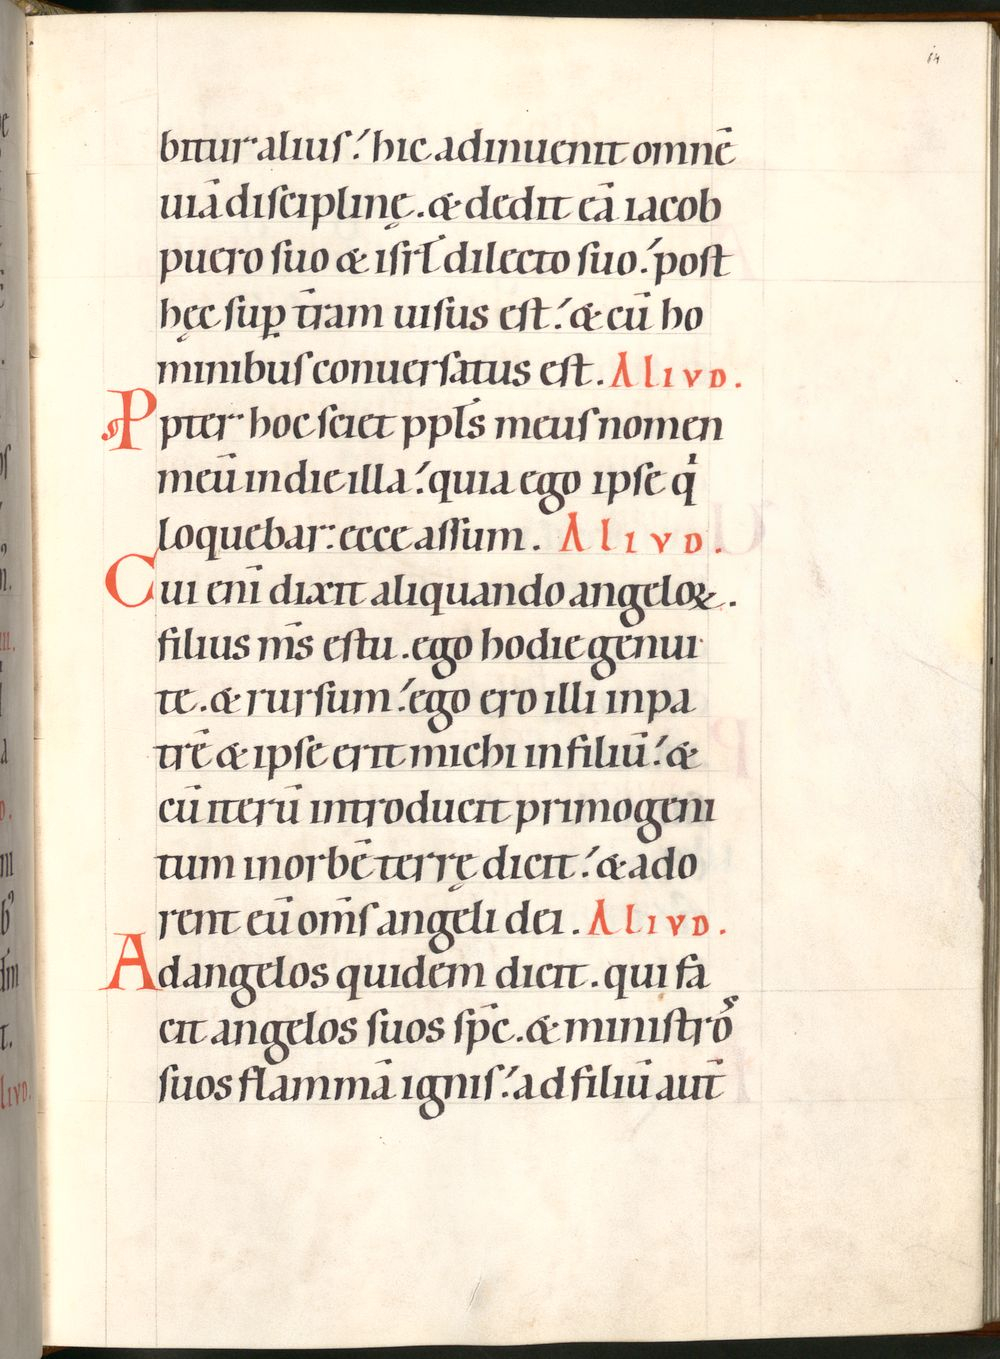 14
bitur alius. hic adinuenit omnē
uiā discipline̜. & dedit eā iacob
puero suo & isrł dilecto suo. post
he̜c suꝑ t̄ram uisus est. & cū ho
minibus conuersatus est. ALIVD.
Ꝓpter hoc sciet ppłs meus nomen
meū in die illa. quia ego ipse q̇
loquebar: ecce assum. ALIVD.
Cui eni̅ dixit aliquando angeloꝝ.
filius m̄s es tu. ego hodie genui
te. & rursum. ego ero illi in pa
trē & ipse erit michi in filiū. &
cū iterū introducit primogeni
tum in orbē terre̜ dicit. & ado
rent eū om̄s angeli dei. ALIVD.
Ad angelos quidem dicit. qui fa
cit angelos suos sp̄c. & ministros
suos flammā ignis. ad filiū aut̄